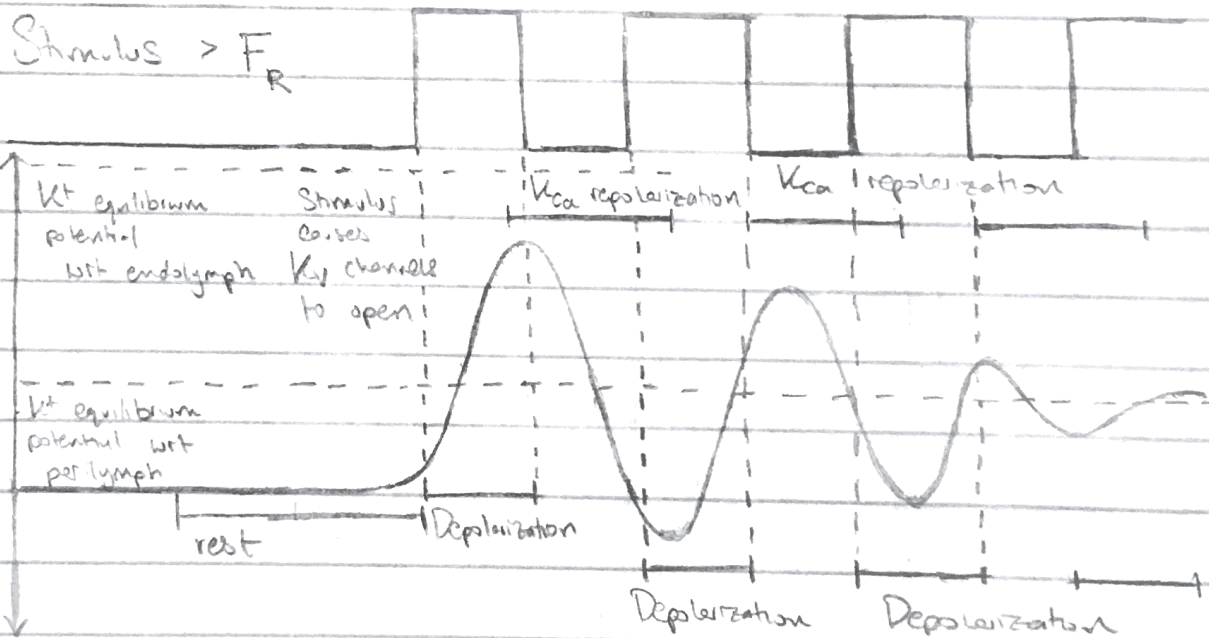 Stimulus > F_R
K⁺ equilibrium
potential
wrt endolymph
Stimulus
causes
Kv channels
to open
K_Ca repolarization
K_Ca repolarization
K⁺ equilibrium
potential wrt
perilymph
rest
Depolarization
Depolarization
Depolarization